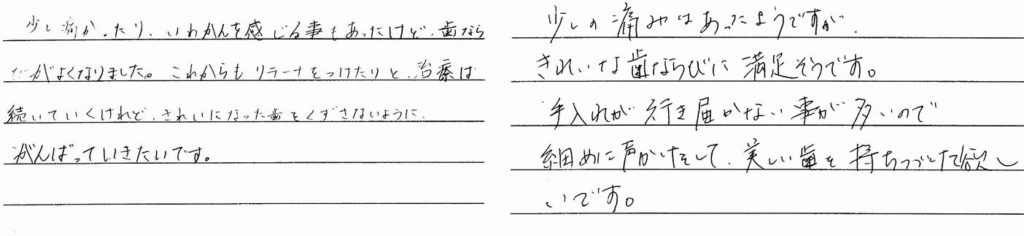 少し痛かったり、いわかんを感じる事もあったけど、歯なら
びがよくなりました。これからもリテーナをつけたりと、治療は
続いていくけれど、きれいになった歯をくずさないように、
がんばっていきたいです。
少しの痛みはあったようですが、
きれいな歯ならびに満足そうです。
手入れが行き届かない事が多いので
細めに声かけをして、美しい歯を持ちつづけて欲し
いです。